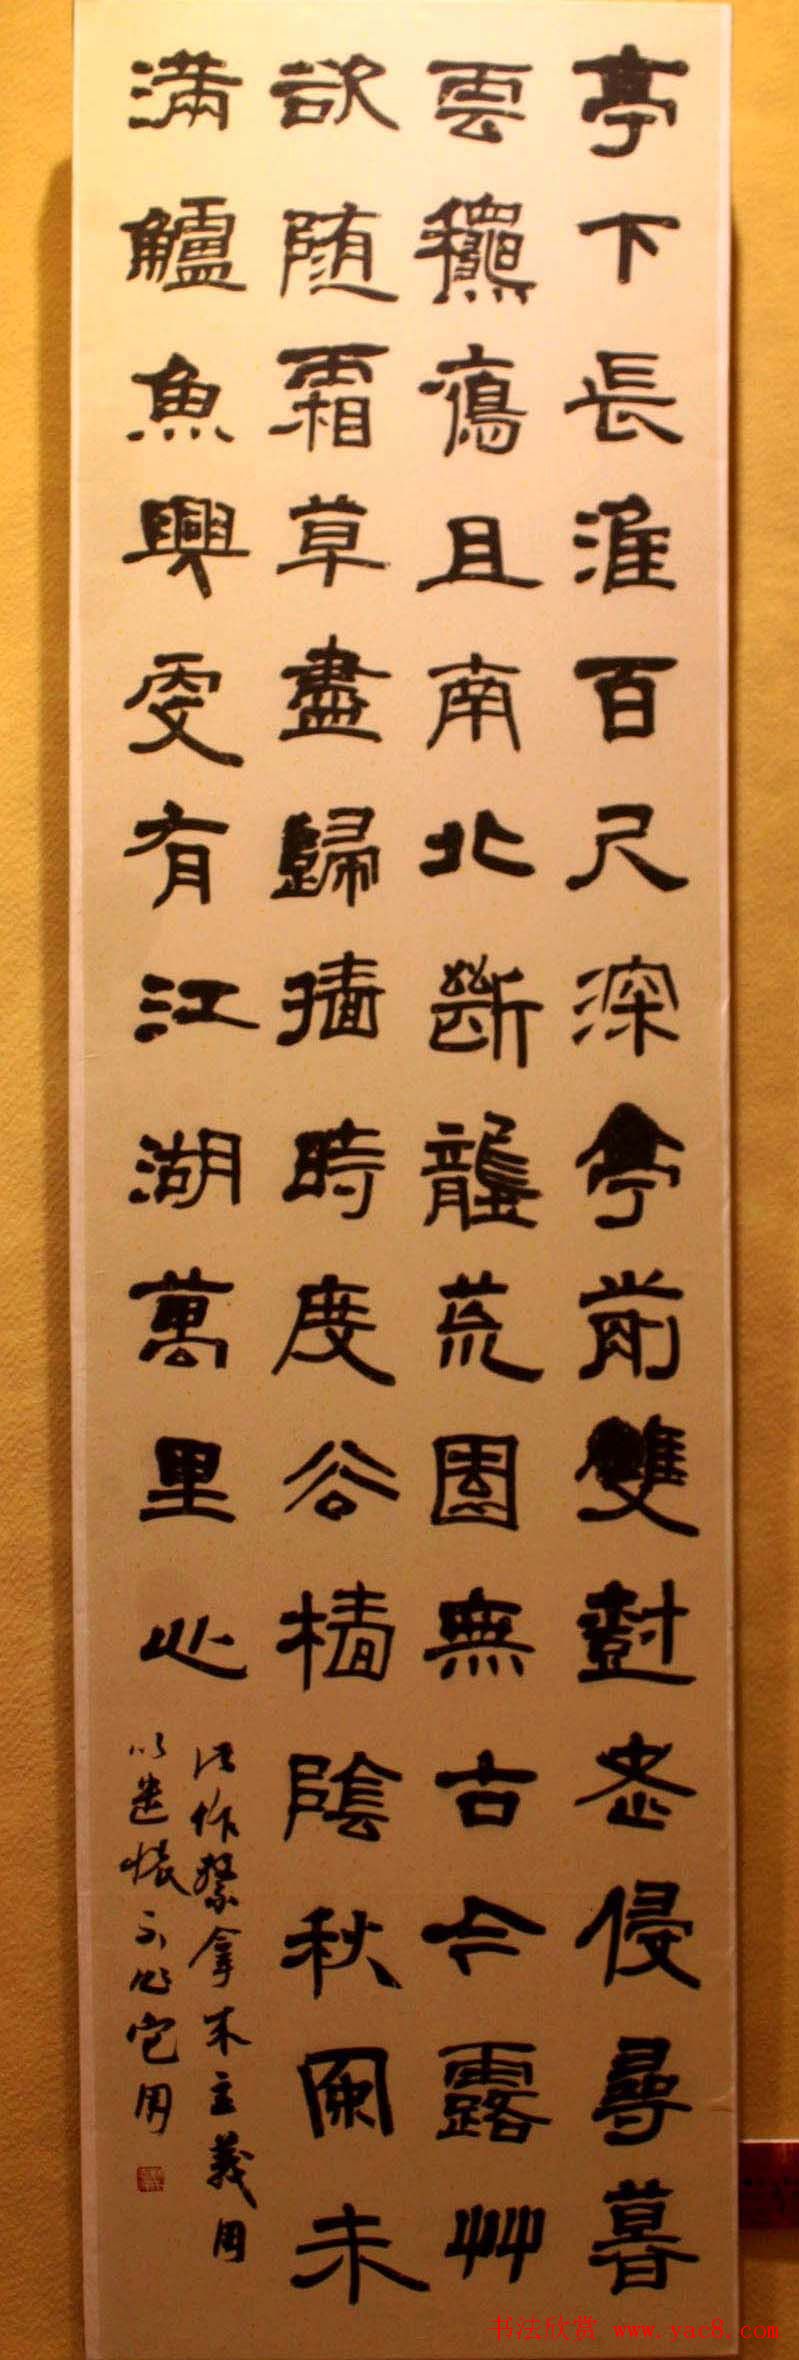 亭下長淮百尺深亭前雙樹老侵尋暮
雲龝鴈且南北斷壟荒園無古今露艸
欲随霜草盡歸檣時度谷檣陰秋風未
滿鱸魚興更有江湖萬里心
拿木主義用
以遣懷不作它用
书法欣赏 www.yac8.com